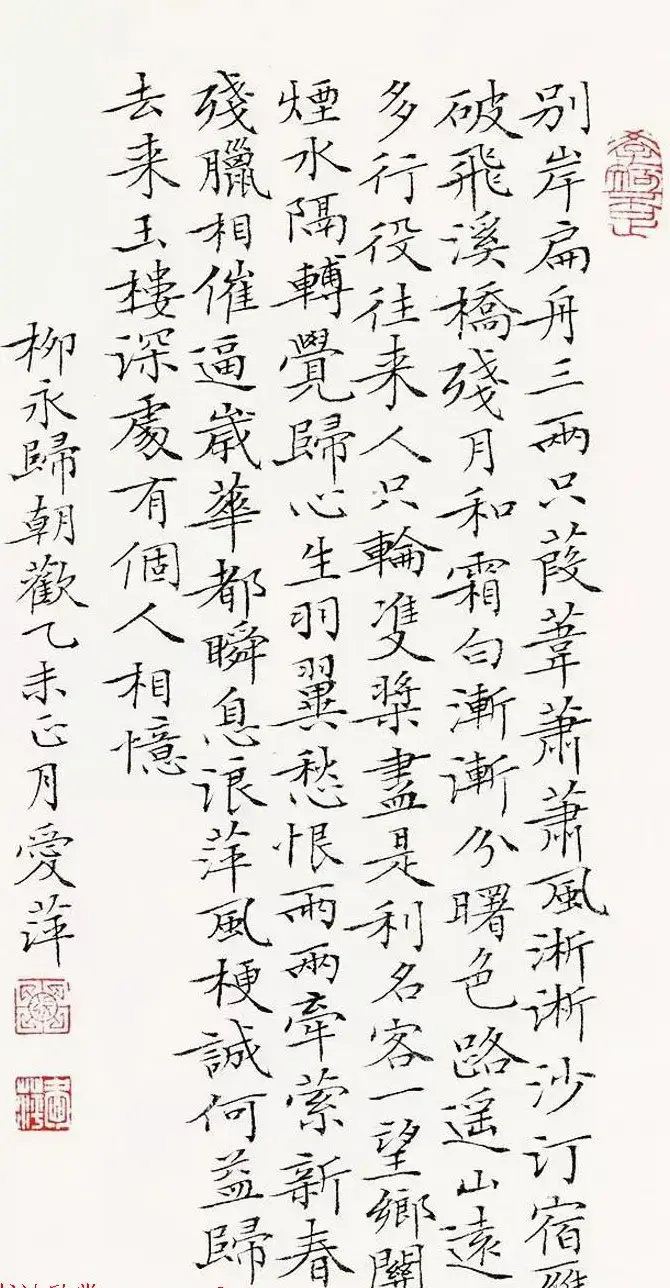 別岸扁舟三兩只葭葦蕭蕭風淅淅沙汀宿雁
破飛溪橋殘月和霜白漸漸分曙色路遥山遠
多行役往来人只輪雙槳盡是利名客一望鄉關
煙水隔轉覺歸心生羽翼愁恨雨兩牽縈新春
殘臘相催逼歲華都瞬息浪萍風梗誠何益歸
去来玉樓深處有個人相憶
柳永歸朝歡乙未正月愛萍